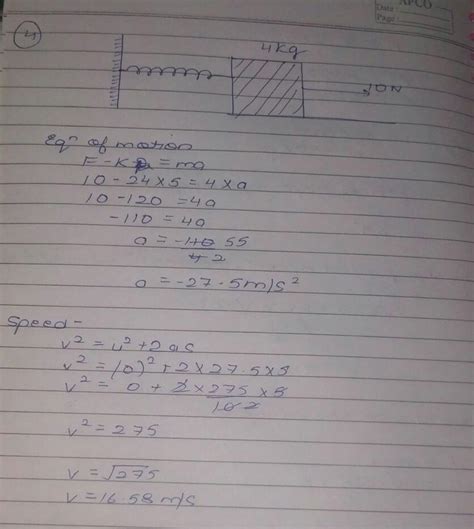 APCO
Date :
Page :
4
4Kg
10N
Eqⁿ of motion
F - K = ma
10 - 24 × 5 = 4 × a
10 - 120 = 4a
-110 = 4a
a = -110 55
4 2
a = -27.5 m/s²
Speed -
v² = u² + 2as
v² = (0)² + 2 × 27.5 × 5
v² = 0 + 2 × 275 × 5
10 2
v² = 275
v = √275
v = 16.58 m/s